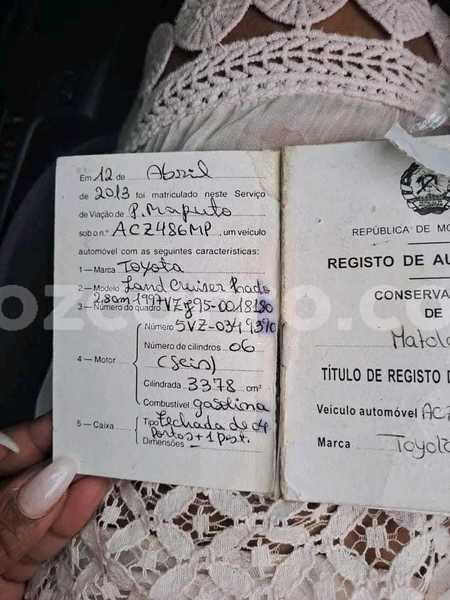 Em 12 de Abril
de 2013 foi matriculado neste Serviço
de Viação de P. Maputo
sob o n.º ACZ486MP, um veículo
automóvel com as seguintes características:
1 — Marca Toyota
2 — Modelo Land Cruiser Prado
3 — Número do quadro VZJ95-0018180
Número 5VZ-0349390
Número de cilindros 06
4 — Motor (Seis)
Cilindrada 3378 cm³
Combustível gasolina
5 — Caixa Tipo Fechada de 4
Portas + 1 Post.
Dimensões —
REPÚBLICA DE MO
REGISTO DE AU
CONSERVA
DE
Matola
TÍTULO DE REGISTO D
Veículo automóvel ACZ
Marca Toyota